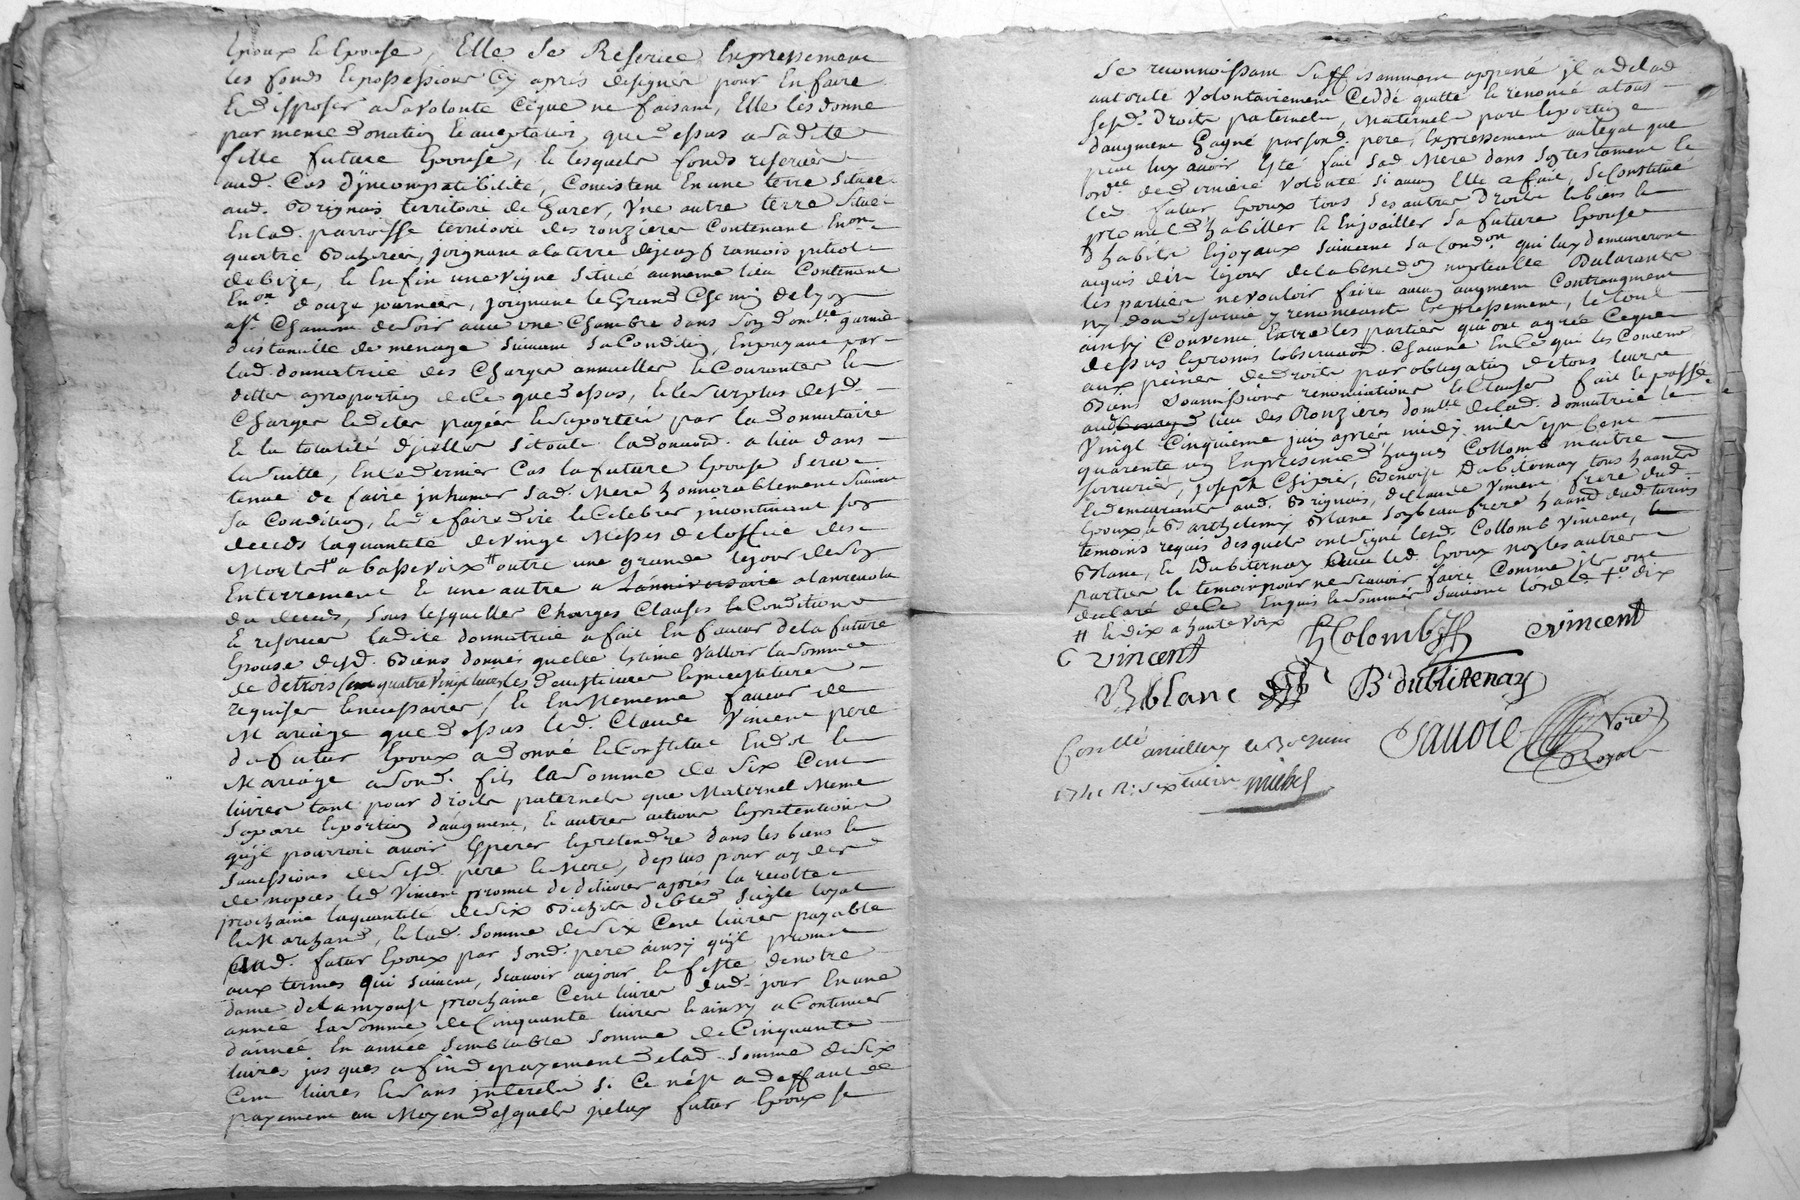 Epoux & Epouse, Elle se Reserve Expressement
les fonds & possessions cy après designés pour En faire
& disposer a sa volonté Ceque ne faisant, Elle les donne
par meme donation & acceptation que dessus a sa dite
fille future Epouse, & lesquels fonds reservés
aud. Cas d'jncompatibilité, Consistent En une terre située
aud. Brignais territoire de , Une autre terre située
En lad. parroisse territoire des ronzieres Contenant En.on
quattre Bicherées, joignant a la terre de jean francois pitiot
de bize, & En fin une vigne situé au meme lieu Contenant
En.on douze journées, joignant le Grand Chemin de lyon
a St. Chamond de soir avec une Chambre dans son dom.lle garnie
d'ustancille de menage suivant sa Condition, En payant par
lad. donnatrice des Charges annuelles & Courantes &
dettes a proportion de ce que dessus, & le surplus desd.
Charges & dettes payées & suportées par la donnataire
& la totalité d'jcelles si toute la donnaon. a lieu dans
la suitte, En le dernier Cas la future Epouse sera
tenue de faire jnhumer sad. Mere honnorablement suivant
sa Condition, & de faire dire & Celebrer jncontinent son
deceds la quantité de vingt Messes de l'office des
Morts a basse voix # outre une grande le jour de son
Enterrement & une autre a l'anniversaire a la revolu
du deceds, sous lesquelles Charges Clauses & Conditions
& reserves ladite donnatrice a fait En faveur de la future
Epouse desd. Biens donnés quelle Estime Valloir la somme
de detrois quatre vingt livres les d'ecritures & jnvestitures
requises & necessaires, & En Mememe faveur de
Mariage que dessus led. Claude Vincent pere
du futur Epoux a donné & Constitué En dot &
Mariage a sond. fils la somme de six Cent
livres tant pour droits paternels que Maternel Meme
sa part & portion d'augment, & autres actions & pretentions
qu'jl pourroit avoir Esperer & pretendre dans les biens &
successions de sesd. pere & Mere, deplus pour ayder
de nopces led Vincent promet de delivrer après la recolte
prochaine la quantité de six Bichets de bled seigle loyal
& Marchand, & lad. somme de six Cent livres payable
aud. futur Epoux par sond. pere ainsy qu'jl promet
aux termes qui suivent, scavoir au jour & feste de notre
dame de la myoust prochaine Cent livres dud. jour En une
année la somme de Cinquante livres & ainsy a Continuer
d'année En année semblable somme de Cinquante
livres jusques a fin de payement de lad. somme de six
Cent livres & sans jnterets si Ce n'est a deffaut de
payement au Moyen desquels jceluy futur Epoux se
se reconnoissant suffisamment appené jl a delad
autorité volontairement Ceddé quitté & renoncé a tous
sesd. droits paternels, Maternel part & portion
d'augment gagné par sond. pere, Expressement au legat que
peut luy avoir Eté fait sad. Mere dans son testament &
ord.ce de derniere Volonté si aucun Elle a fait, se Constitue
led. futur Epoux tous ses autres droits & biens &
promet d'habiller & Enjoailler sa future Epouse
d'habits & joyaux suivant sa Condon. qui luy demeureront
acquis dès le jour de la benedon nuptialle Declarants
les parties ne vouloir faire aucun augment Contraugment
ny don de survie y renoncant Expressement, le tout
ainsy Convenu Entre les parties qui ont agréé Ceque
dessus & promis l'observation. Chacune En Ce qui les Concerne
aux peines de droits par obligation de tous leurs
Biens soumissions renonciations & Clauses fait & passé
aud. lieu des Ronzieres dom.lle de lad. donnatrice le
Vingt Cinquieme juin après midy mil sept Cent
quarente un En presence d'hugues Collomb maitre
serrurier, joseph , Benoist Dubitenay tous habitts
& demeurants aud. Brignais, de Claude Vincent frere dud
Epoux & Barthelemy Blanc son beau frere habitt dud Turins
temoins requis desquels ont signé lesd. Collomb Vincent, &
Blanc, & Dubitenay avec led. Epoux non les autres
parties & temoin pour ne scavoir faire Comme jls ont
declaré de Ce Enquis & sommés suivant l'ord.ce + dix
# & dix a haute voix
C vincent hColomby Cvincent
Bblanc B dubitenay
Conollé a le 
1741 R. six livres michel
Sauoie Nore Royal